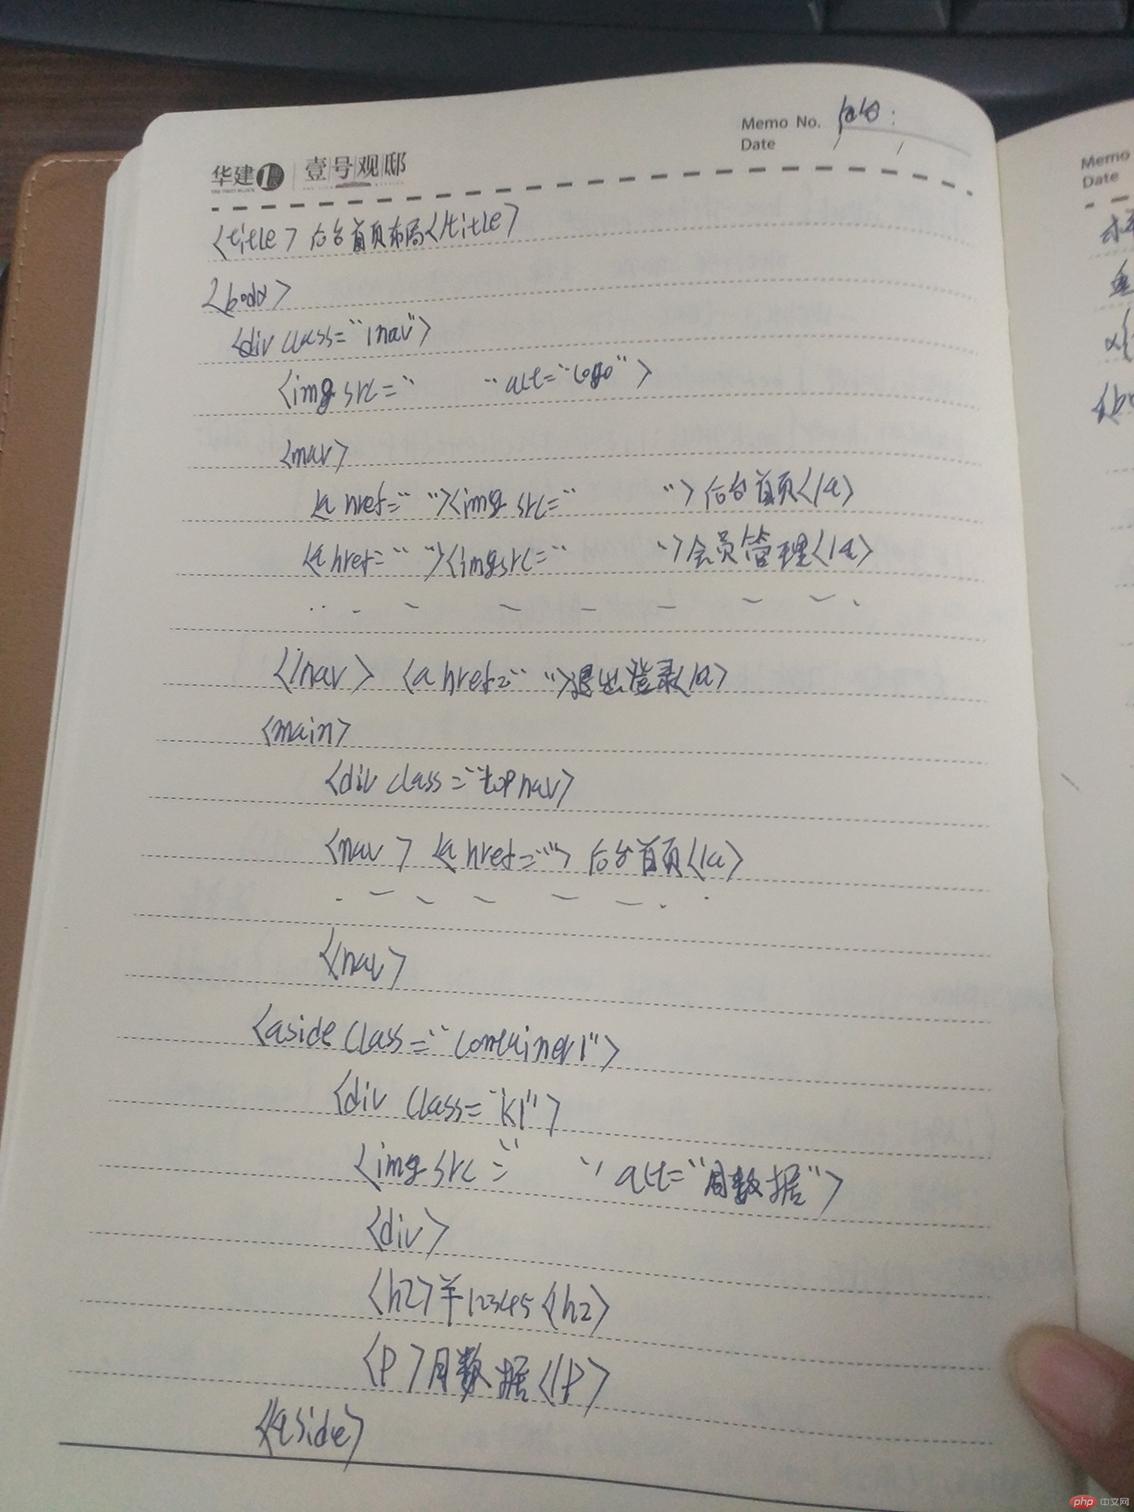 华建1 壹号观邸
Memo No.
Date
<title>后台首页布局</title>
<body>
<div class="lnav">
<img src="     " alt="logo">
<nav>
<a href="  "><img src="     ">后台首页</a>
<a href="  "><img src="     ">会员管理</a>
</nav> <a href="  ">退出登录</a>
<main>
<div class="topnav>
<nav> <a href="">后台首页</a>
</nav>
<aside class="container1">
<div class="k1">
<img src="     " alt="月数据">
<div>
<h2>羊12345</h2>
<p>月数据</p>
</aside>
Memo
Date
php 中文网